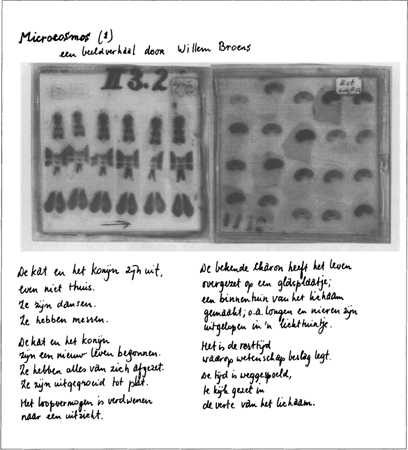 Microcosmos (1)
een beeldverhaal door Willem Broens
II 3.2
De kat en het konijn zijn uit,
even niet thuis.
Ze zijn dansen.
Ze hebben messen.
De kat en het konijn
zijn een nieuw leven begonnen.
Ze hebben alles van zich afgezet.
Ze zijn uitgegroeid tot plat.
Het loopvermogen is verdwenen
naar een uitzicht.
De bekende Charon heeft het leven
overgezet op een glasplaatje;
een binnentuin van het lichaam
gemaakt; o.a. longen en nieren zijn
uitgelopen in 'n lichttuintje.
Het is de resttijd
waarop wetenschap beslag legt.
De tijd is weggespoeld,
te kijk gezet in
de verte van het lichaam.